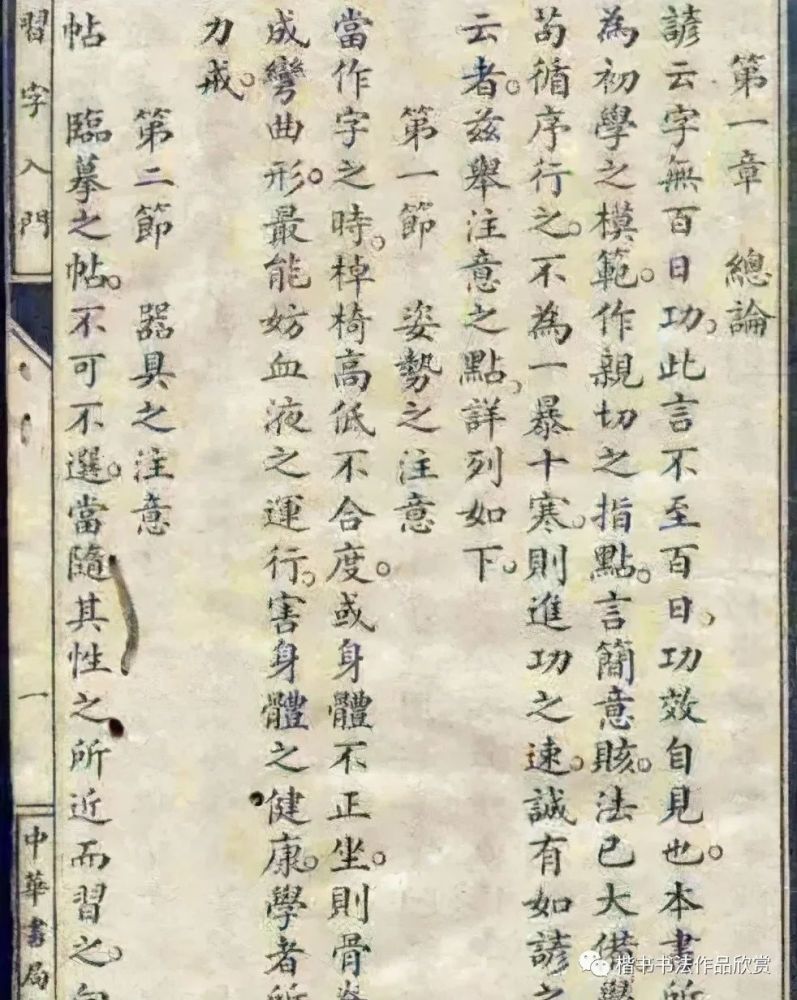 第一章 總論
諺云字無百日功。此言不至百日、功效自見也。本書所
為初學之模範。作親切之指點。言簡意賅。法已大備。學
苟循序行之。不為一暴十寒。則進功之速。誠有如諺之
云者。茲舉注意之點、詳列如下。
第一節 姿勢之注意
當作字之時。棹椅高低不合度。或身體不正坐。則骨脊
成彎曲形。最能妨血液之運行。害身體之健康。學者所
力戒。
第二節 器具之注意
帖 臨摹之帖。不可不選。當隨其性之所近而習之。
習字入門
一
中華書局
楷书书法作品欣赏